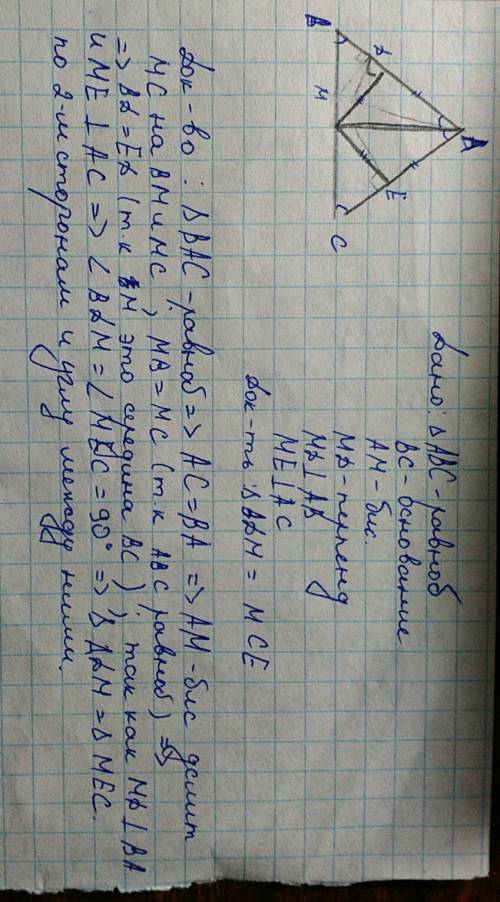 B
D
A
M
E
C
Дано: △ABC - равноб
BC - основание
AM - бис.
MD - перпенд
MD ⊥ AB
ME ⊥ AC
Док-ть: △BDM = MCE
Док-во: △BAC - равноб => AC = BA => AM - бис делит
MC на BM и MC, MB = MC (т.к ABC равноб) =>
=> BD = ED (т.к M это середина BC); так как MD ⊥ BA
и ME ⊥ AC => ∠BDM = ∠MEC = 90° => △BDM = △MEC.
по 2-м сторонам и углу между ними.